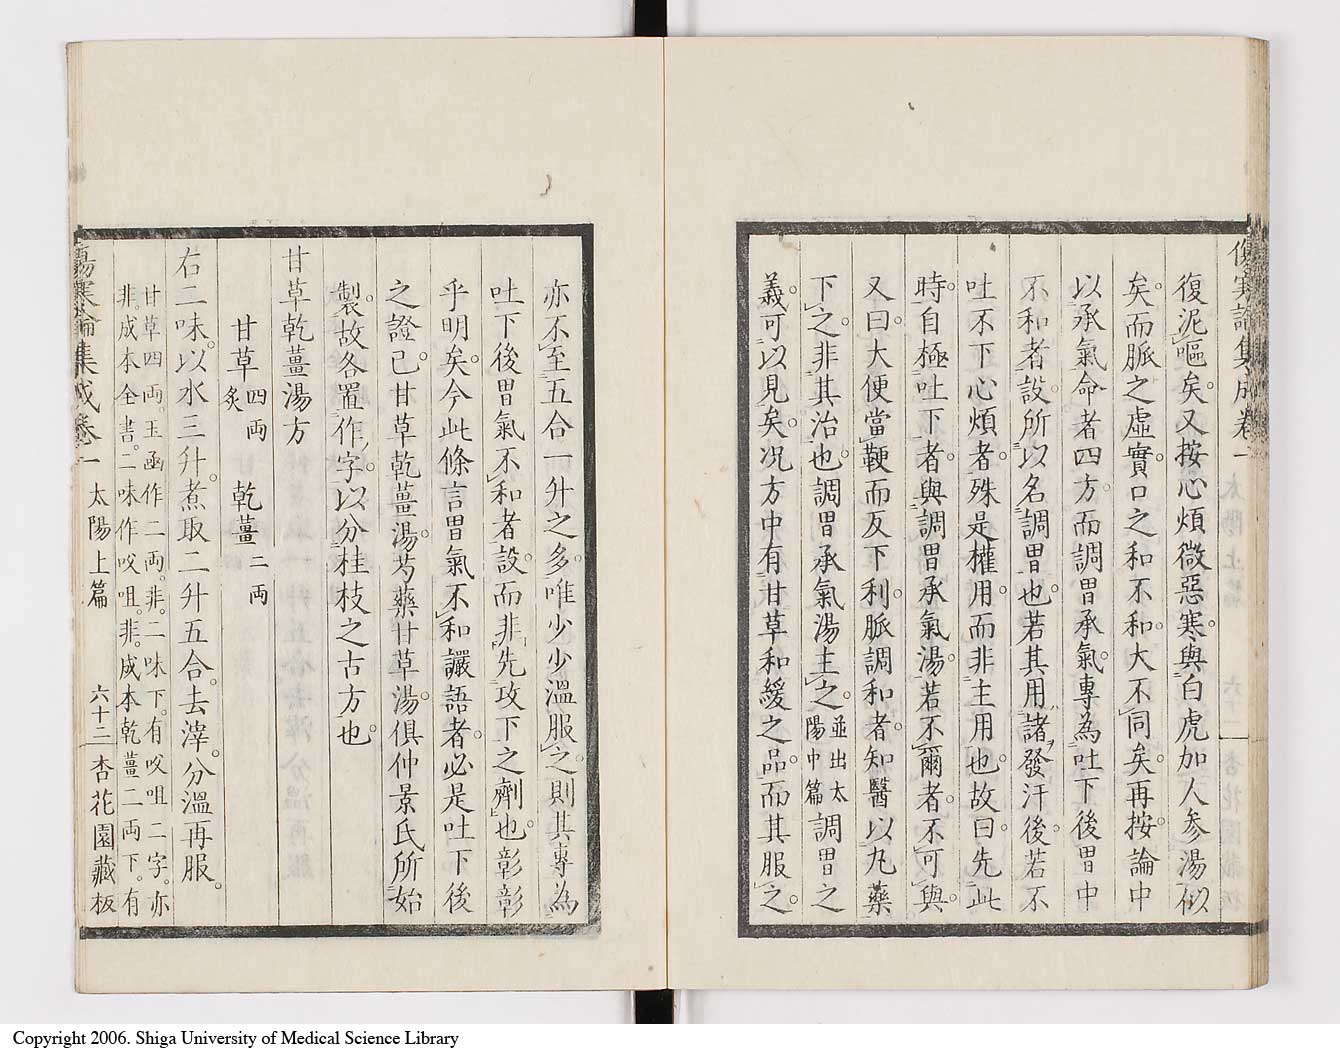 傷寒論集成卷一
復泥嘔矣。又按心煩微惡寒。與白虎加人參湯似
矣。而脈之虛實。口之和不和。大不同矣。再按。論中
以承氣命者四方。而調胃承氣。專為吐下後胃中
不和者。設所以名調胃也。若其用諸發汗後。若不
吐不下心煩者。殊是權用。而非主用也。故曰。先此
時。自極吐下者。與調胃承氣湯。若不爾者。不可與。
又曰。大便當鞕而反下利。脈調和者。知醫以丸藥
下之。非其治也。調胃承氣湯主之。並出太陽中篇調胃之
義。可以見矣。况方中有甘草和緩之品。而其服之。
亦不至五合一升之多。唯少少溫服之。則其專為
吐下後胃氣不和者。設而非先攻下之劑也。彰彰
乎明矣。今此條言胃氣不和讝語者。必是吐下後
之證已。甘草乾薑湯。芍藥甘草湯。俱仲景氏所始
製。故各置作字。以分桂枝之古方也。
甘草乾薑湯方
甘草四兩炙 乾薑二兩
右二味。以水三升。煮取二升五合。去滓。分溫再服。
甘草四兩。玉函作二兩。非。二味下。有㕮咀二字。亦
非。成本全書。二味作㕮咀。非。成本乾薑二兩下。有
傷寒論集成卷一 太陽上篇 六十三 杏花園藏板
Copyright 2006. Shiga University of Medical Science Library